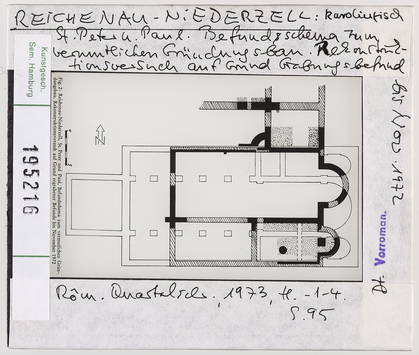 REICHENAU-NIEDERZELL: karolingisch
St. Peter u. Paul. Befundschema zum
vermutlichen Gründungsbau. Rekonstruk-
tionsversuch auf Grund Grabungsbefund
bis Nov. 1972
Kunstgesch.
Sem. Hamburg
195216
Fig. 2: Reichenau-Niederzell, St. Peter und Paul, Befundschema zum vermutlichen Grün-
dungsbau, Rekonstruktionsversuch auf Grund ergrabener Befunde bis November 1972
N
Vorroman.
Röm. Quartalsch., 1973, H. -1-4.
S. 95